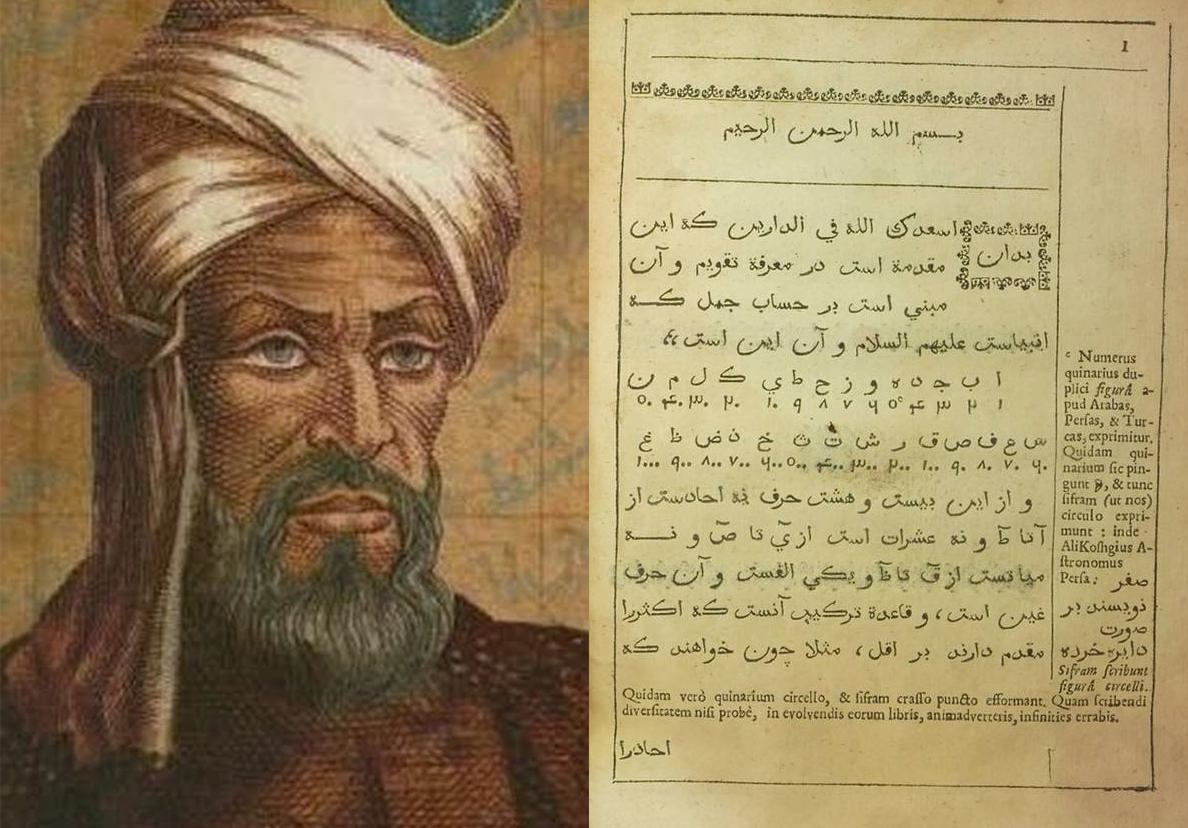 1
بسم الله الرحمن الرحيم
بدان اسعدك الله في الدارين كه اين
مقدمة است در معرفة تقويم و آن
مبني است بر حساب جمل كه
انبياست عليهم السلام و آن اين است
ا ب ج د ه و ز ح ط ي ك ل م ن
۱ ۲ ۳ ۴ ۵ᶜ ۶ ۷ ۸ ۹ ۱۰ ۲۰ ۳۰ ۴۰ ۵۰
س ع ف ص ق ر ش ت ث خ ذ ض ظ غ
۶۰ ۷۰ ۸۰ ۹۰ ۱۰۰ ۲۰۰ ۳۰۰ ۴۰۰ ۵۰۰ ۶۰۰ ۷۰۰ ۸۰۰ ۹۰۰ ۱۰۰۰
و از اين بيست و هشت حرف نه احادست از
آ تا ط و نه عشرات است از ي تا ص و نه
مياتست از ق تا ظ و يكي الفست و آن حرف
غين است، و قاعدة تركيب آنست كه اكثررا
مقدم دارند بر اقل، مثلا چون خواهند كه
ᶜ Numerus
quinarius du-
plici figurâ a-
pud Arabas,
Persas, & Tur-
cas, exprimitur.
Quidam qui-
narium sic pin-
gunt, & tunc
sifram (ut nos)
circulo expri-
munt : inde
Ali Koshgius A-
stronomus
Persa: صفر
نويسند بر
صورت
دايره خرده
Sifram scribunt
figurâ circelli.
Quidam verò quinarium circello, & sifram crasso puncto efformant. Quam scribendi
diversitatem nisi probè, in evolvendis eorum libris, animadverteris, infinities errabis.
احادرا